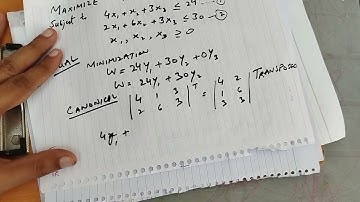 MAXIMIZE
Subject t 4x₁ + x₂ + 3x₃ ≤ 24 - ①
2x₁ + 6x₂ + 3x₃ ≤ 30 - ②
x₁, x₂, x₃ ≥ 0
DUAL MINIMIZATION
W = 24y₁ + 30y₂ + 0y₃
W = 24y₁ + 30y₂
CANONICAL | 4 1 3 | 2 6 3 |ᵀ = | 4 2 | 1 6 | 3 3 | TRANSPOSED
4y₁ +